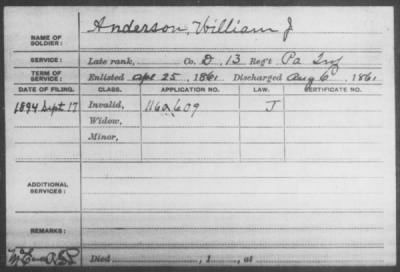 NAME OF SOLDIER: Anderson, William J
SERVICE: Late rank, Co. D, 13 Reg't Pa Inf
TERM OF SERVICE: Enlisted Apr 25, 1861 Discharged Aug 6, 1861
DATE OF FILING. CLASS. APPLICATION NO. LAW. CERTIFICATE NO.
1894 Sept 17 Invalid, 1162609 J
Widow,
Minor,
ADDITIONAL SERVICES:
REMARKS:
Died , 1 , at